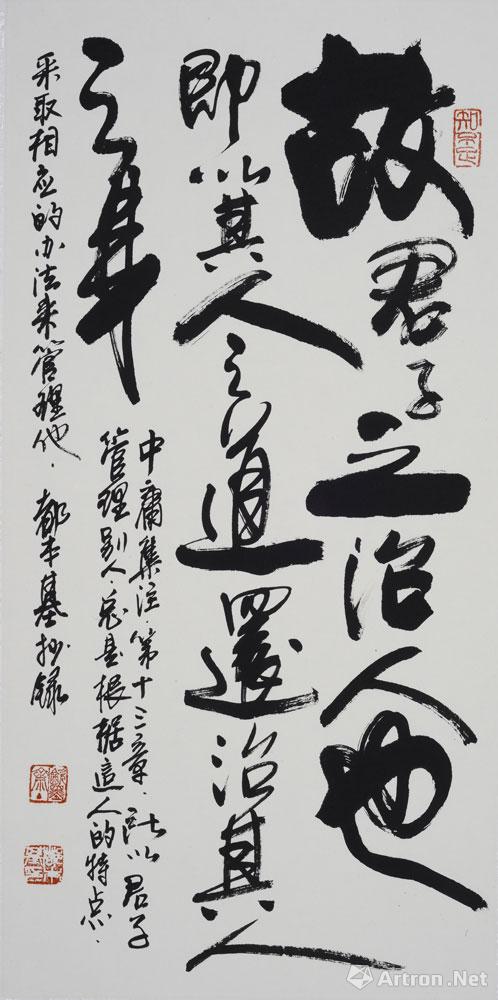 故君子之治人也
即以其人之道還治其人
之身
中庸集注·第十三章·所以君子
管理别人·总是根据這人的特点·
采取相应的办法来管理他·都本基抄录
雅昌艺术网
Artron.Net